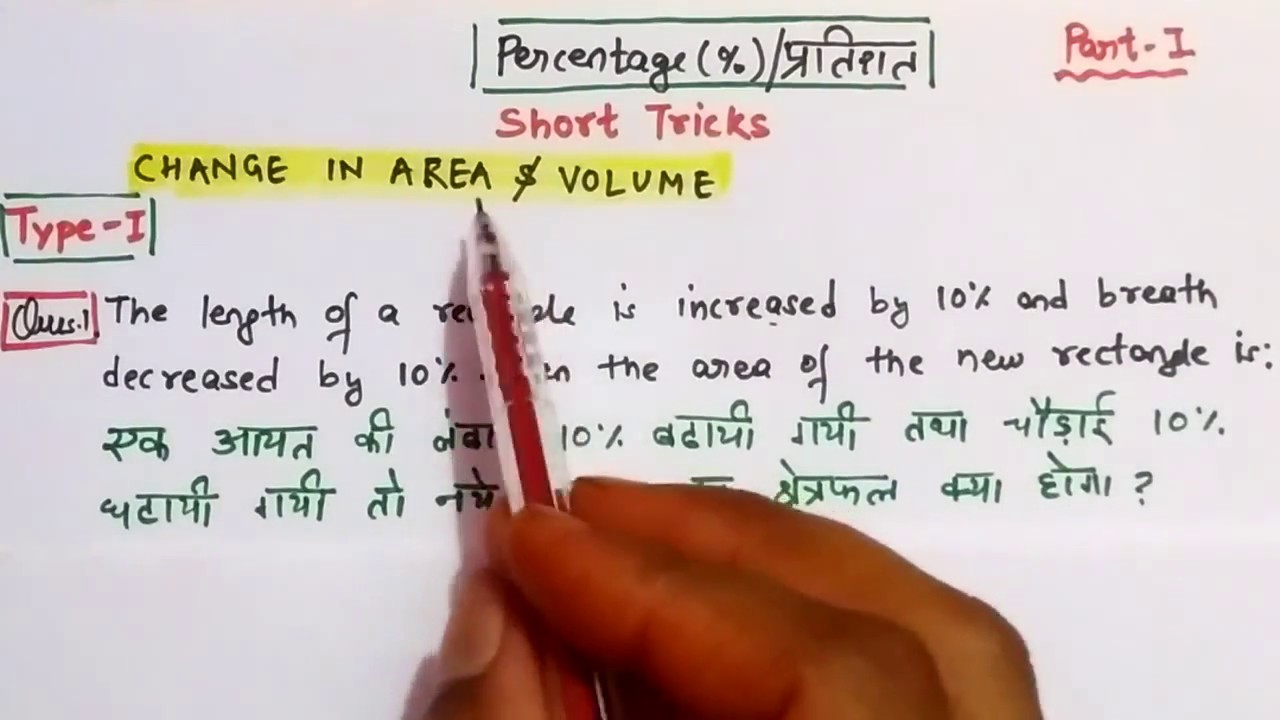 Percentage(%)/प्रतिशत
Part-I
Short Tricks
CHANGE IN AREA & VOLUME
Type-I
Ques.1 The length of a is increased by 10% and breath
decreased by 10%. the area of the new rectangle is:
एक आयत की 10% बढायी गयी तथा चौड़ाई 10%.
घटायी गयी तो नये क्षेत्रफल क्या होगा ?